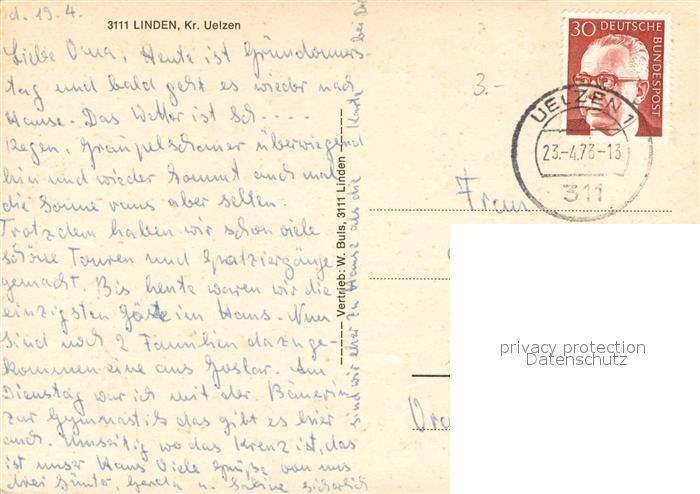 d. 19.4.
3111 LINDEN, Kr. Uelzen
Liebe Oma, Heute ist Gründonners-
tag und bald geht es wieder nach
Hause. Das Wetter ist Sch----
Regen, Graupelschauer überwiegend
hin und wieder kommt auch mal
die Sonne raus aber selten.
Trotzdem haben wir schon viele
schöne Touren und Spaziergänge
gemacht. Bis heute waren wir die
einzigsten Gäste im Haus. Nun
sind noch 2 Familien dazuge-
kommen eine aus Goslar. Am
Dienstag war ich mit der Bäuerin
zur Gymnastik das gibt es hier
auch. Umseitig wo das Kreuz ist, das
ist unser Haus Viele Grüße von uns
drei Günter, Gerda u. Sabine Sicherlich
sind wir eher zu Hause als die Karte bei Dir
Vertrieb: W. Buls, 3111 Linden
3.-
30 DEUTSCHE BUNDESPOST
UELZEN 1
23.-4.73-13
311
Frau
privacy protection
Datenschutz